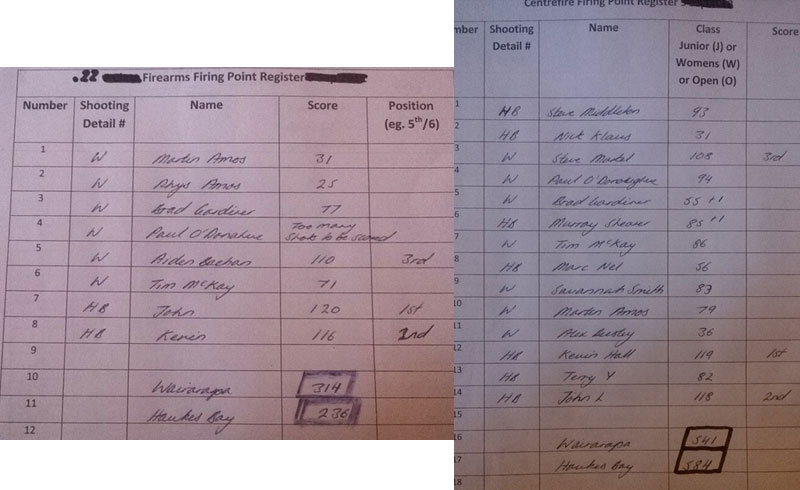 .22 Firearms Firing Point Register
Number Shooting Detail # Name Score Position (eg. 5th/6)
1 W Martin Amos 31
2 W Rhys Amos 25
3 W Brad Gardiner 77
4 W Paul O'Donahue Too many shots to be scored
5 W Aiden 110 3rd
6 W Tim McKay 71
7 HB John 120 1st
8 HB Kevin 116 2nd
9
10 Wairarapa 314
11 Hawkes Bay 236
12
Centrefire Firing Point Register
mber Shooting Detail # Name Class Junior (J) or Womens (W) or Open (O) Score
1 HB Steve Middleton 93
2 HB Nick Klaus 31
3 W Steve 108 3rd
4 W Paul O'Donoghue 94
5 W Brad Gardiner 55 +1
6 HB Murray Shearer 85 +1
7 W Tim McKay 86
8 HB Marc Nel 56
9 W Savannah Smith 83
10 W Martin Amos 79
11 W Alex 36
12 HB Kevin Hall 119 1st
13 HB Terry Y 82
14 HB John L 118 2nd
15
16 Wairarapa 541
17 Hawkes Bay 584
18